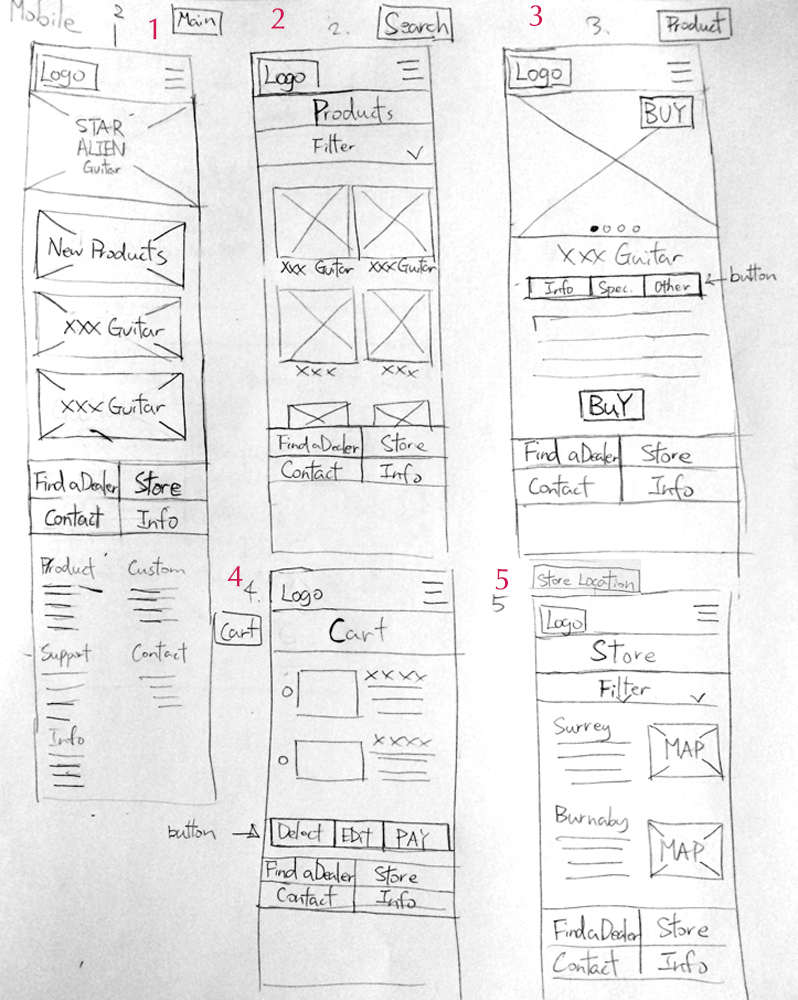 Mobile 2
1 Main
Logo
STAR
ALIEN
Guitar
New Products
XXX Guitar
XXX Guitar
Find a Dealer Store
Contact Info
Product Custom
Support Contact
Info
2 2. Search
Logo
Products
Filter
XXX Guitar XXX Guitar
XXX XXX
Find a Dealer Store
Contact Info
3 3. Product
Logo
BUY
XXX Guitar
Info Spec. Other button
BUY
Find a Dealer Store
Contact Info
4 4.
Cart
Logo
Cart
XXXX
XXXX
button Delect EDIT PAY
Find a Dealer Store
Contact Info
5 Store Location
5
Logo
Store
Filter
Surrey
MAP
Burnaby
MAP
Find a Dealer Store
Contact Info